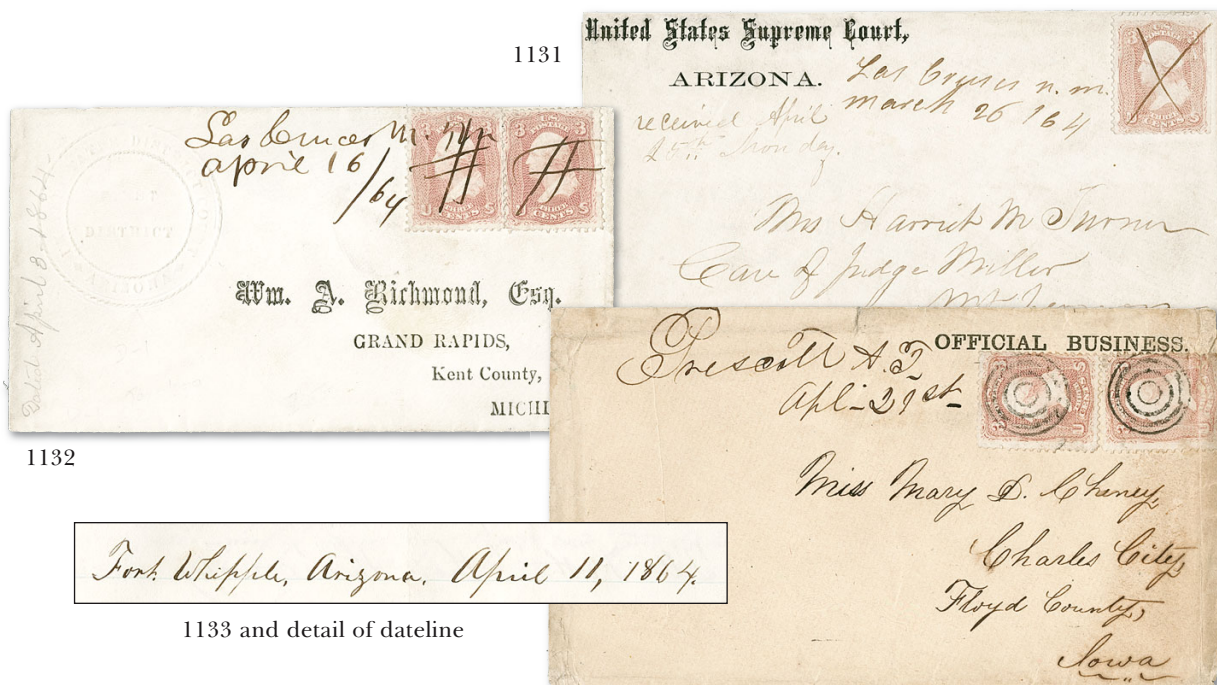 1131
United States Supreme Court,
ARIZONA.
Las Cruces n. m.
march 26 / 64
received April
25th Monday.
Mrs Harriet M Turner
Care of Judge Miller
Las Cruces N. M
april 16
/64
DISTRICT
Dated April 8th 1864
Wm. A. Richmond, Esq.
GRAND RAPIDS,
Kent County,
MICHI
1132
Prescott A. T.
Apl- 21st
OFFICIAL BUSINESS.
Miss Mary D. Cheney,
Charles City,
Floyd County,
Iowa
Fort Whipple, Arizona. April 11, 1864.
1133 and detail of dateline